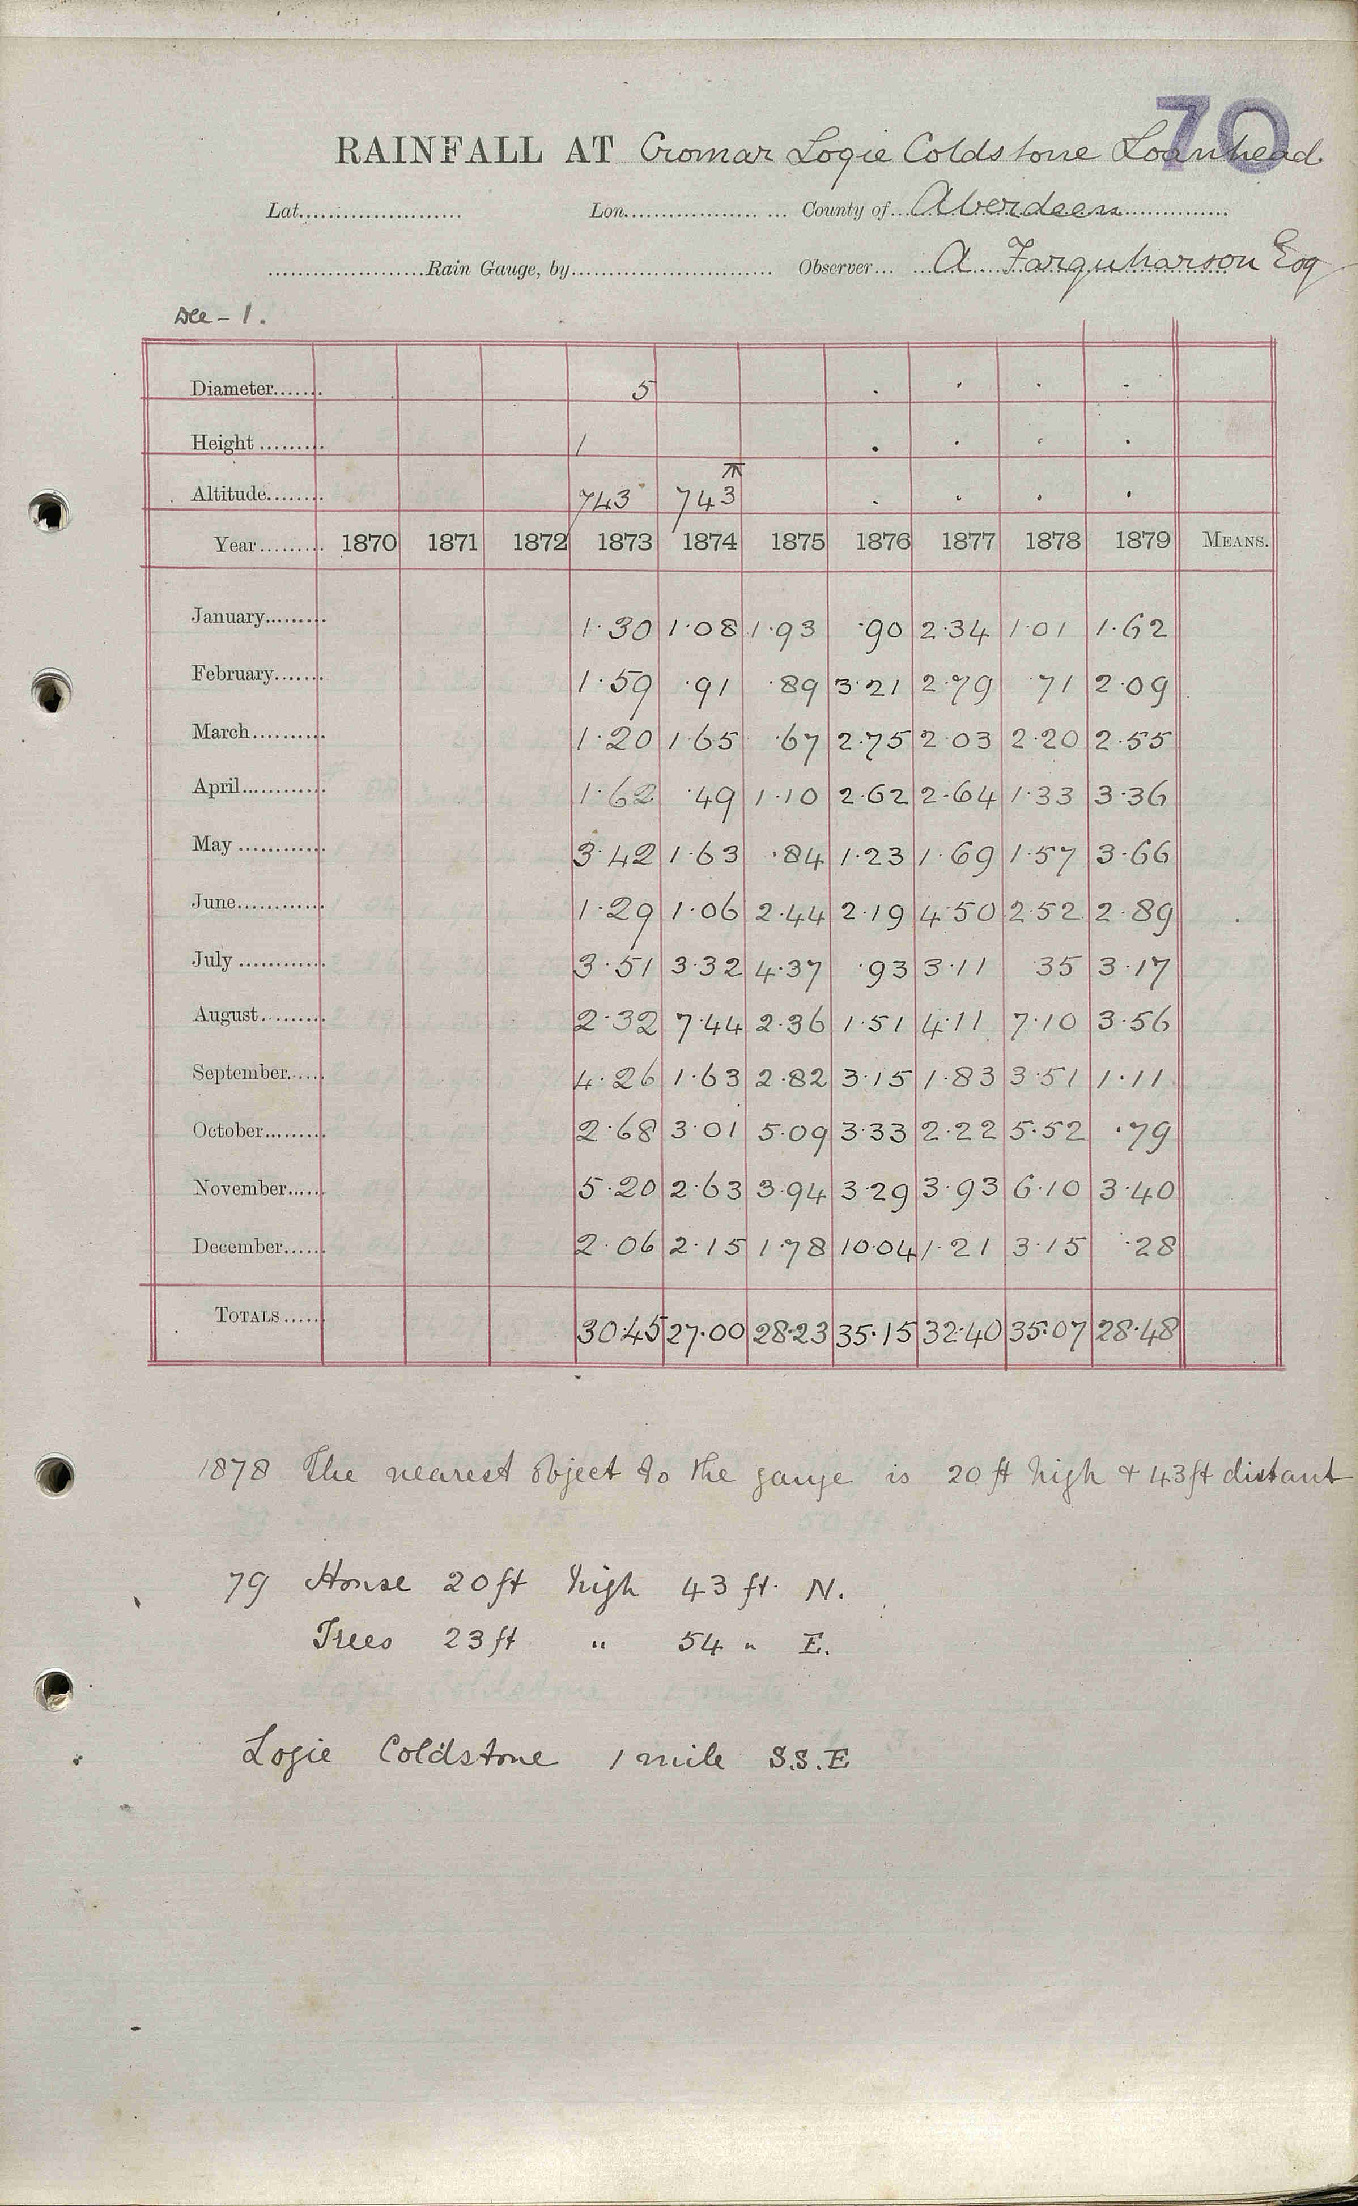 70
RAINFALL AT Cromar Logie Coldstone Loanhead
Lat. Lon. County of Aberdeen
Rain Gauge, by Observer A Farquharson Esq
Dee - 1.
Diameter 5
Height 1
Altitude 743 743
Year 1870 1871 1872 1873 1874 1875 1876 1877 1878 1879 MEANS.
January 1.30 1.08 1.93 .90 2.34 1.01 1.62
February 1.59 .91 .89 3.21 2.79 .71 2.09
March 1.20 1.65 .67 2.75 2.03 2.20 2.55
April 1.62 .49 1.10 2.62 2.64 1.33 3.36
May 3.42 1.63 .84 1.23 1.69 1.57 3.66
June 1.29 1.06 2.44 2.19 4.50 2.52 2.89
July 3.51 3.32 4.37 .93 3.11 35 3.17
August 2.32 7.44 2.36 1.51 4.11 7.10 3.56
September 4.26 1.63 2.82 3.15 1.83 3.51 1.11
October 2.68 3.01 5.09 3.33 2.22 5.52 .79
November 5.20 2.63 3.94 3.29 3.93 6.10 3.40
December 2.06 2.15 1.78 10.04 1.21 3.15 .28
TOTALS 30.45 27.00 28.23 35.15 32.40 35.07 28.48
1878 The nearest object to the gauge is 20 ft high & 43 ft distant
79 House 20 ft high 43 ft. N.
Trees 23 ft " 54 " E.
Logie Coldstone 1 mile S.S.E